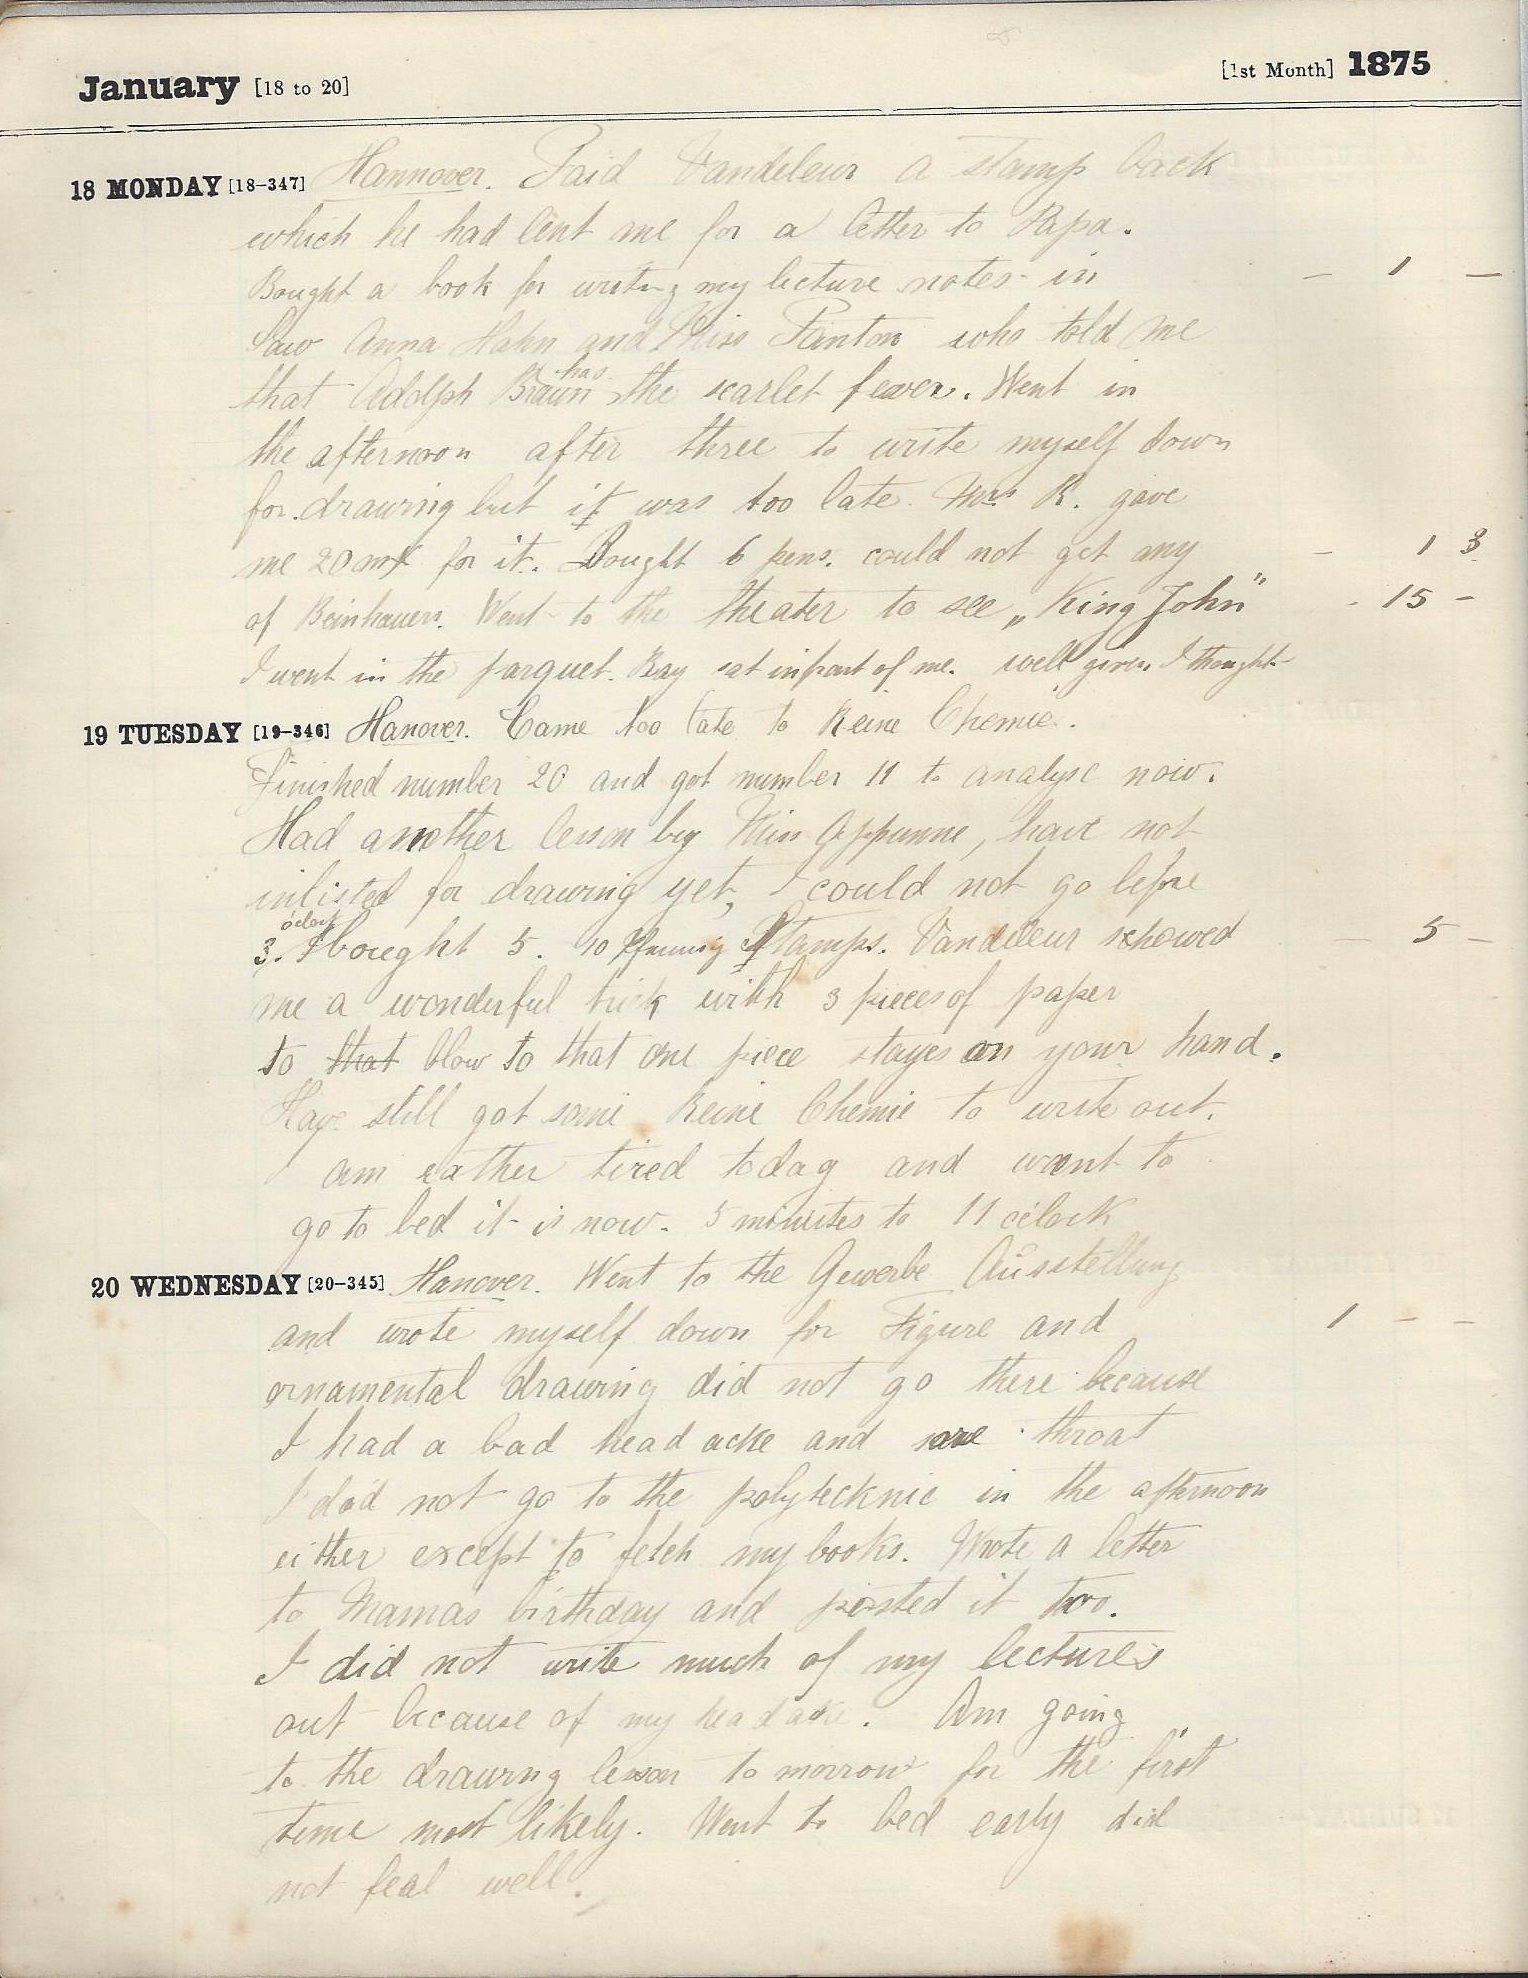 January [18 to 20] [1st Month] 1875
18 MONDAY [18-347] Hannover. Paid Vandeleur a stamp back
which he had lent me for a letter to Papa.
Bought a book for writing my lecture notes in — 1 —
Saw Anna Hahn and Miss Panton who told me
that Adolph Braun has the scarlet fever. Went in
the afternoon after three to write myself down
for drawing but it was too late. Mrs R. gave
me 20 mk for it. Bought 6 pens. could not get any — 1 3
of Beinhauers. Went to the theater to see „King John" - 15 -
I went in the parquet. Ray sat infront of me. well given I thought
19 TUESDAY [19-346] Hanover. Came too late to Reine Chemie.
Finished number 20 and got number 11 to analyse now.
Had another lesson by Miss Appunne, have not
inlisted for drawing yet, I could not go before
3. o'clock bought 5. 10 Pfennig Stamps. Vandeleur schowed — 5 —
me a wonderful trick with 3 pieces of paper
to that blow to that one piece stayes on your hand.
Have still got some Reine Chemie to write out.
am rather tired today and want to
go to bed it is now. 5 minutes to 11 o'clock
20 WEDNESDAY [20-345] Hanover. Went to the Gewerbe Ausstellung
and wrote myself down for Figure and 1 - -
ornamental drawing did not go there because
I had a bad head acke and sore throat
I did not go to the polytecknic in the afternoon
either except to fetch my books. Wrote a letter
to Mamas birthday and posted it too.
I did not write much of my lectures
out because of my headake. Am going
to the drawing lesson to morrow for the first
time most likely. Went to bed early did
not feal well.